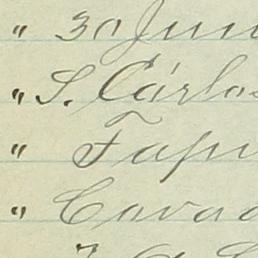 " 30 Jun
" S. Cárlos
" Tapi
" Covad